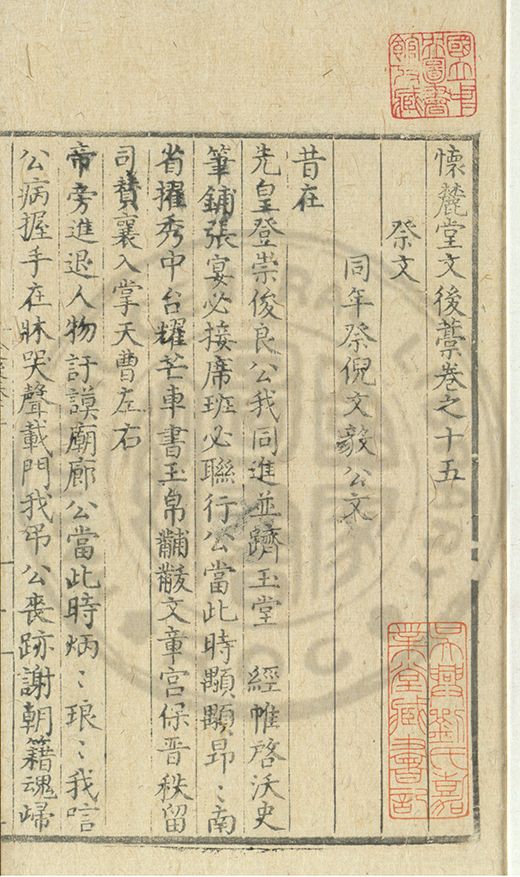 懷麓堂文後藁卷之十五
祭文
同年祭倪文毅公文
昔在
先皇登崇俊良公我同進並躋玉堂 經帷啓沃史
筆鋪張宴必接席班必聯行公當此時顒顒昂〻南
省擢秀中台耀芒車書玉帛黼黻文章宮保晋秩留
司賛襄入掌天曹左右
帝旁進退人物訏謨廟廊公當此時炳〻琅〻我唁
公病握手在牀哭聲載門我吊公喪跡謝朝籍魂歸
國立中
央圖書
館收藏
吳興劉氏嘉
業堂藏書記